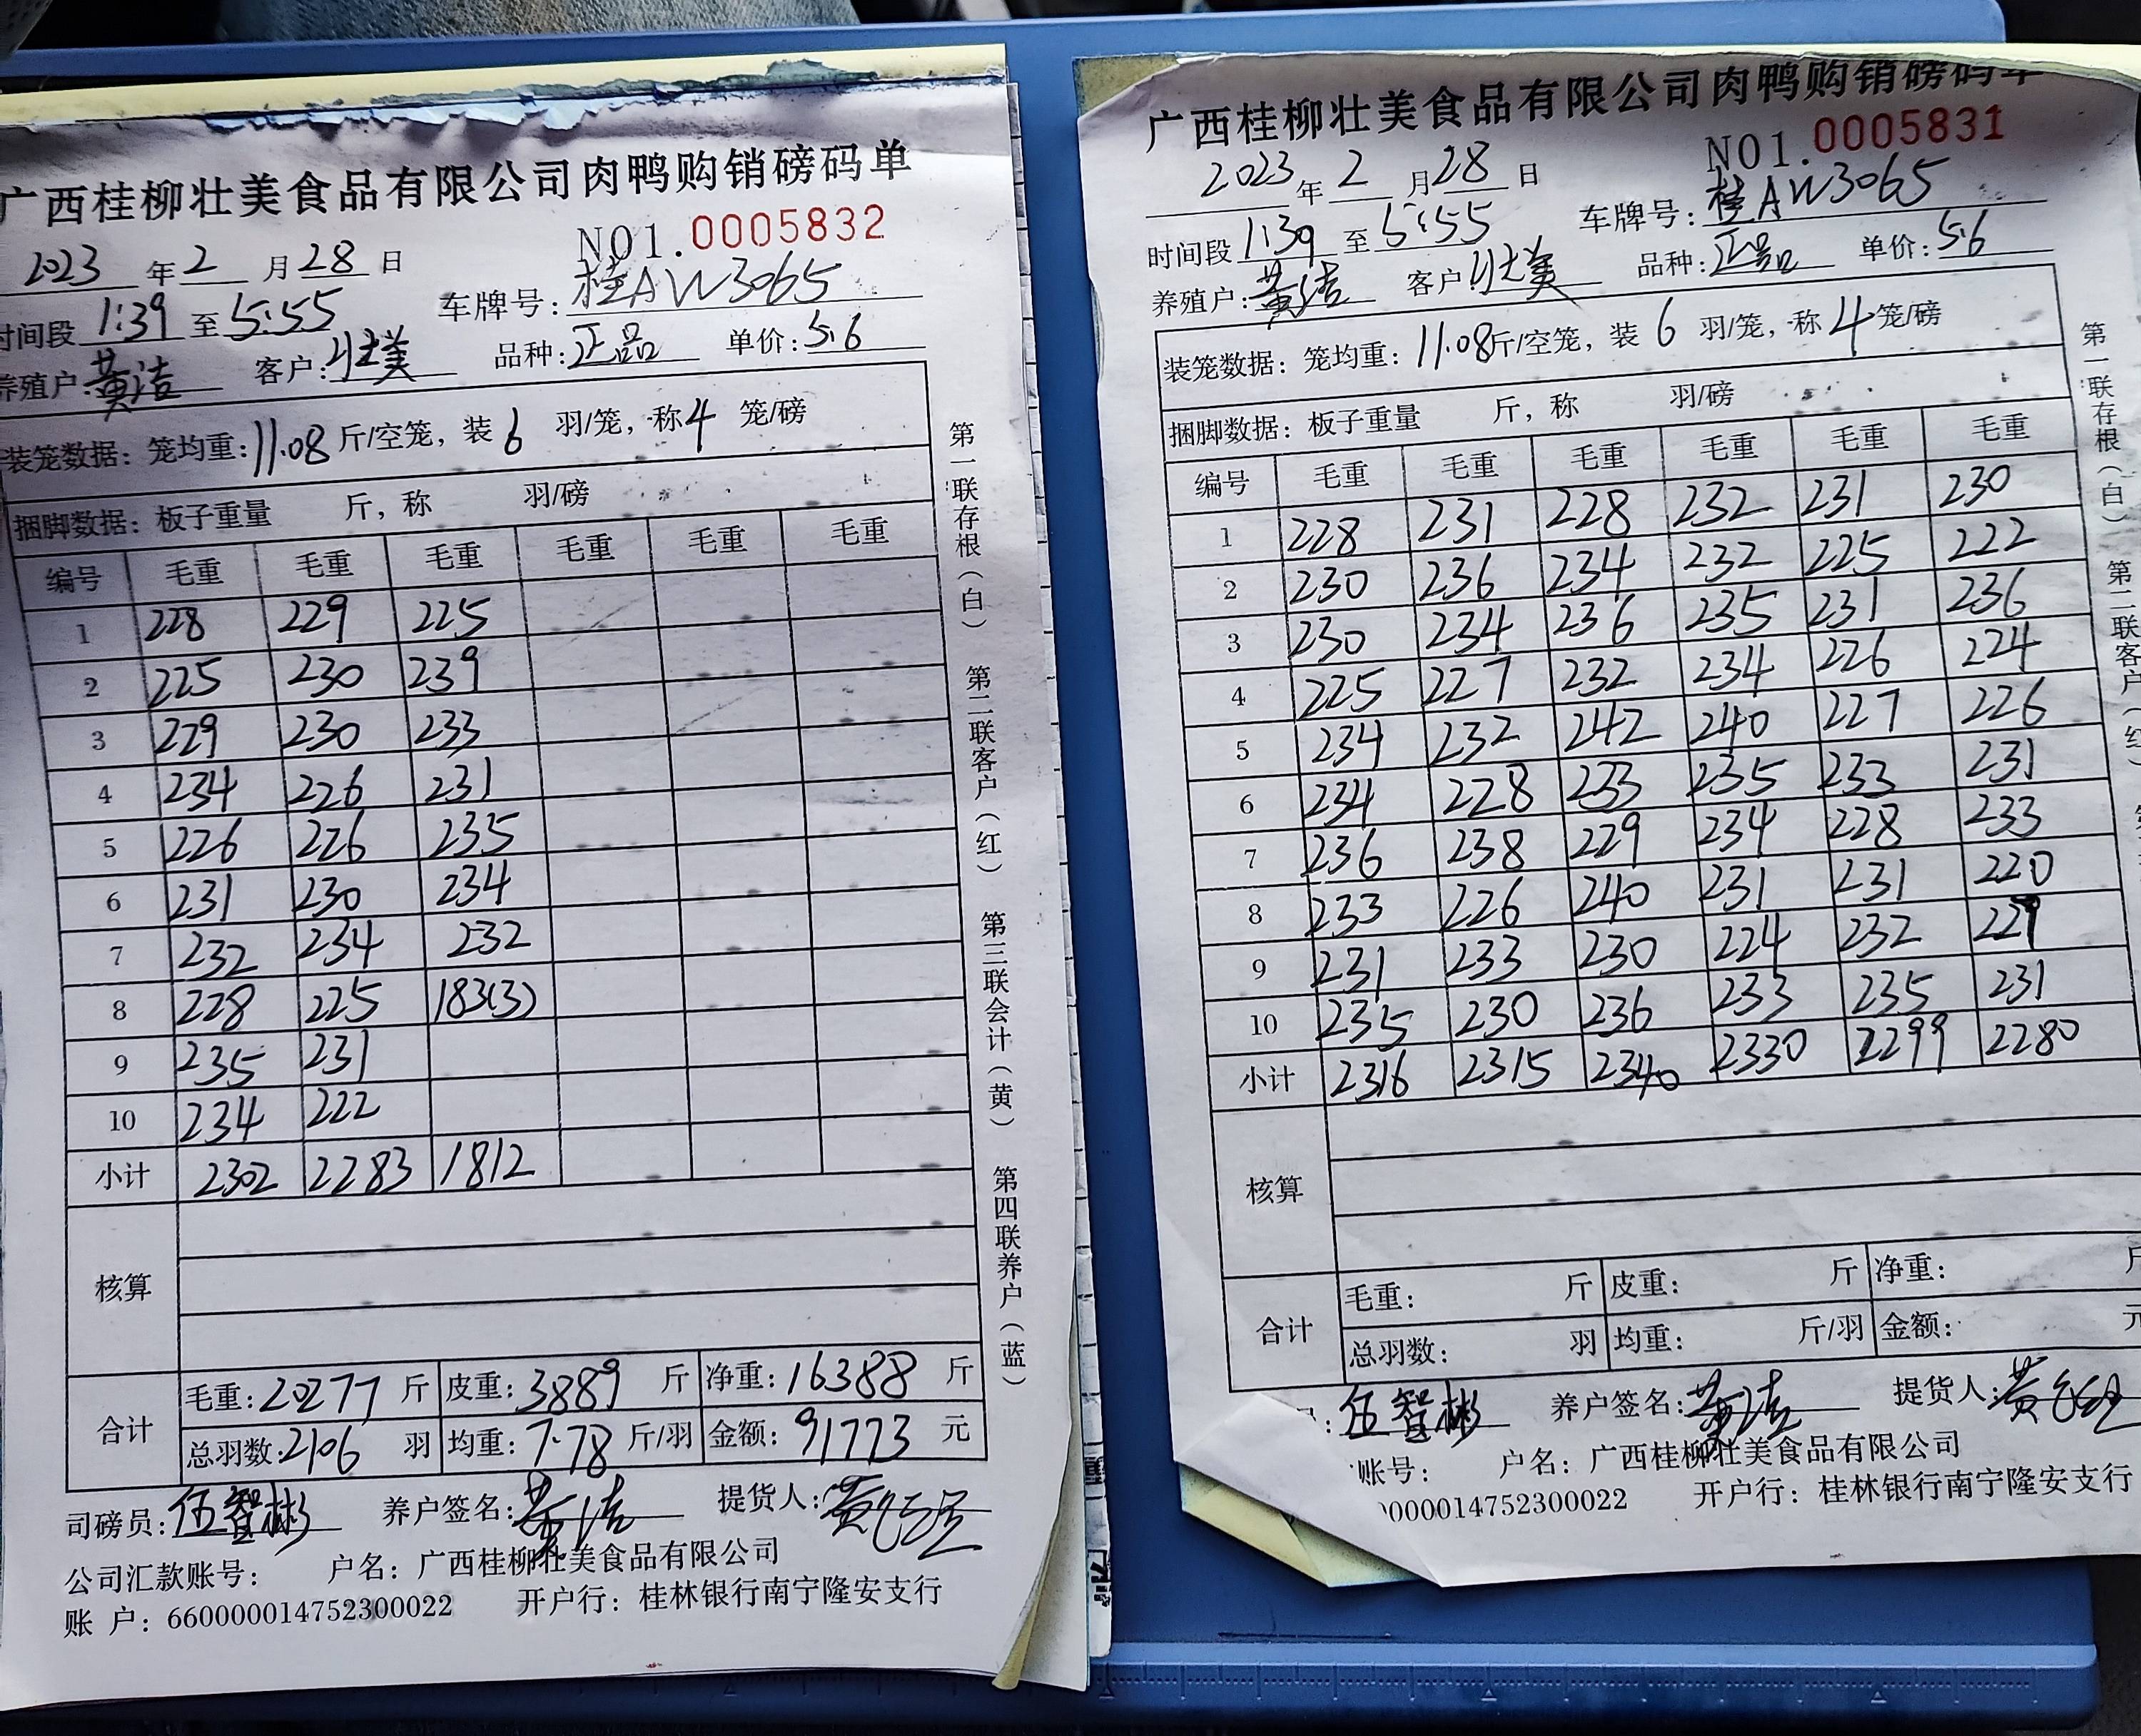 广西桂柳壮美食品有限公司肉鸭购销磅码单
NO1.0005832
2023年2月28日
车牌号:桂AW3065
时间段1:39至5:55
养殖户:黄洁 客户:壮美 品种:正品 单价:5.6
装笼数据:笼均重:11.08斤/空笼,装6羽/笼,称4笼/磅
捆脚数据:板子重量 斤,称 羽/磅
编号 毛重 毛重 毛重 毛重 毛重 毛重
1 228 229 225
2 225 230 239
3 229 230 233
4 234 226 231
5 226 226 235
6 231 230 234
7 232 234 232
8 228 225 183(3)
9 235 231
10 234 222
小计 2302 2283 1812
核算
合计 毛重:20277斤 皮重:3889斤 净重:16388斤
总羽数:2106羽 均重:7.78斤/羽 金额:91773元
司磅员:伍智彬 养户签名:黄洁 提货人:黄
公司汇款账号: 户名:广西桂柳壮美食品有限公司
账 户:660000014752300022 开户行:桂林银行南宁隆安支行
第一联存根(白) 第二联客户(红) 第三联会计(黄) 第四联养户(蓝)
广西桂柳壮美食品有限公司肉鸭购销磅码单
NO1.0005831
2023年2月28日
车牌号:桂AW3065
时间段1:39至5:55
养殖户:黄洁 客户:壮美 品种:正品 单价:5.6
装笼数据:笼均重:11.08斤/空笼,装6羽/笼,称4笼/磅
捆脚数据:板子重量 斤,称 羽/磅
编号 毛重 毛重 毛重 毛重 毛重 毛重
1 228 231 228 232 231 230
2 230 236 234 232 225 222
3 230 234 236 235 231 236
4 225 227 232 234 226 224
5 234 232 242 240 227 226
6 234 228 233 235 233 231
7 236 238 229 234 228 233
8 233 226 240 231 231 220
9 231 233 230 224 232 227
10 235 230 236 233 235 231
小计 2316 2315 2340 2330 2299 2280
核算
合计 毛重: 斤 皮重: 斤 净重: 斤
总羽数: 羽 均重: 斤/羽 金额: 元
:伍智彬 养户签名:黄洁 提货人:黄
账号: 户名:广西桂柳壮美食品有限公司
0000014752300022 开户行:桂林银行南宁隆安支行
第一联存根(白) 第二联客户(红)